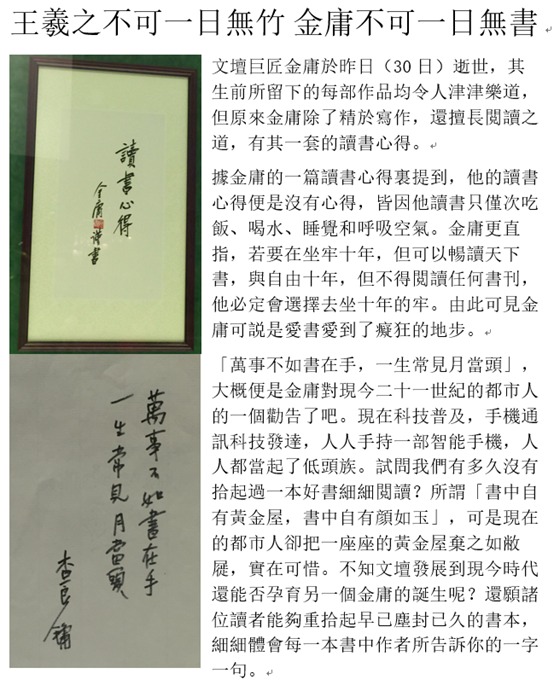 王羲之不可一日無竹 金庸不可一日無書
讀書心得
金庸謹書
萬事不如書在手
一生常見月當頭
查良鏞
文壇巨匠金庸於昨日（30 日）逝世，其
生前所留下的每部作品均令人津津樂道，
但原來金庸除了精於寫作，還擅長閱讀之
道，有其一套的讀書心得。
據金庸的一篇讀書心得裏提到，他的讀書
心得便是沒有心得，皆因他讀書只僅次吃
飯、喝水、睡覺和呼吸空氣。金庸更直
指，若要在坐牢十年，但可以暢讀天下
書，與自由十年，但不得閱讀任何書刊，
他必定會選擇去坐十年的牢。由此可見金
庸可說是愛書愛到了癡狂的地步。
「萬事不如書在手，一生常見月當頭」，
大概便是金庸對現今二十一世紀的都市人
的一個勸告了吧。現在科技普及，手機通
訊科技發達，人人手持一部智能手機，人
人都當起了低頭族。試問我們有多久沒有
拾起過一本好書細細閱讀？所謂「書中自
有黃金屋，書中自有顏如玉」，可是現在
的都市人卻把一座座的黃金屋棄之如敝
屣，實在可惜。不知文壇發展到現今時代
還能否孕育另一個金庸的誕生呢？還願諸
位讀者能夠重拾起早已塵封已久的書本，
細細體會每一本書中作者所告訴你的一字
一句。